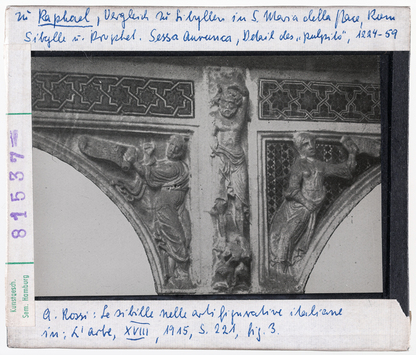 zu Raphael, Vergleich zu Sibyllen in S. Maria della Pace, Rom
Sibylle u. Prophet. Sessa Aurunca, Detail des „pulpito", 1224-59
81537
Kunstgesch.
Sem. Hamburg
A. Rossi: Le sibille nelle arti figurative italiane
in: L'arte, XVIII, 1915, S. 221, fig. 3.